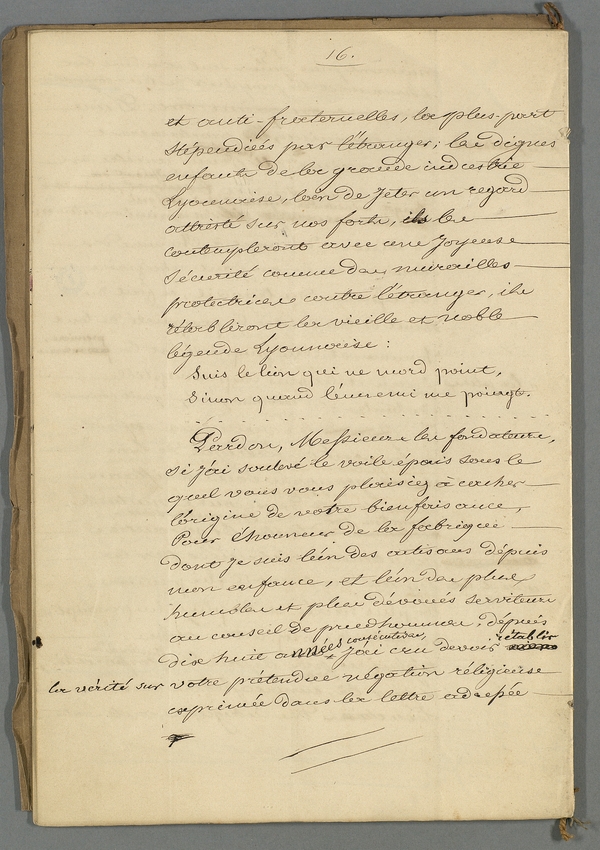 16.
et anti-fraternelles, la plus-part
stipendiées par l'étranger; les dignes
enfants de la grande industrie
Lyonnaise, loin de jeter un regard
attristé sur nos forts, ils les
contempleront avec une joyeuse
sécurité comme des murailles
protectrices contre l'étranger, ils
rétabliront la vieille et noble
légende Lyonnaise :
Suis le lion qui ne mord point,
Sinon quand l'énnemi me poingt.
Pardon, Messieurs les fondateurs,
si j'ai soulevé le voile épais sous le
quel vous vous plaisiez à cacher
l'origine de votre bienfaisance,
Pour l'honneur de la fabrique
dont je suis l'un des artisans dépuis
mon enfance, et l'un des plus
humbles et plus dévoués serviteurs
au conseil de prudhommes, depuis
dix huit années consécutives, j'ai cru devoir rétablir
la vérité sur votre prétendue négation réligieuse
exprimée dans la lettre adressée